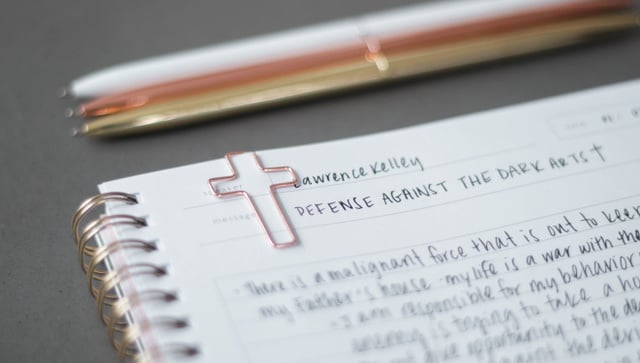 Lawrence Kelley
message
DEFENSE AGAINST THE DARK ARTS†
- There is a malignant force that is out to keep
my Father's house. my life is a war with the
- I am responsible for my behavior
enemy is trying to take a ho
opportunity to the